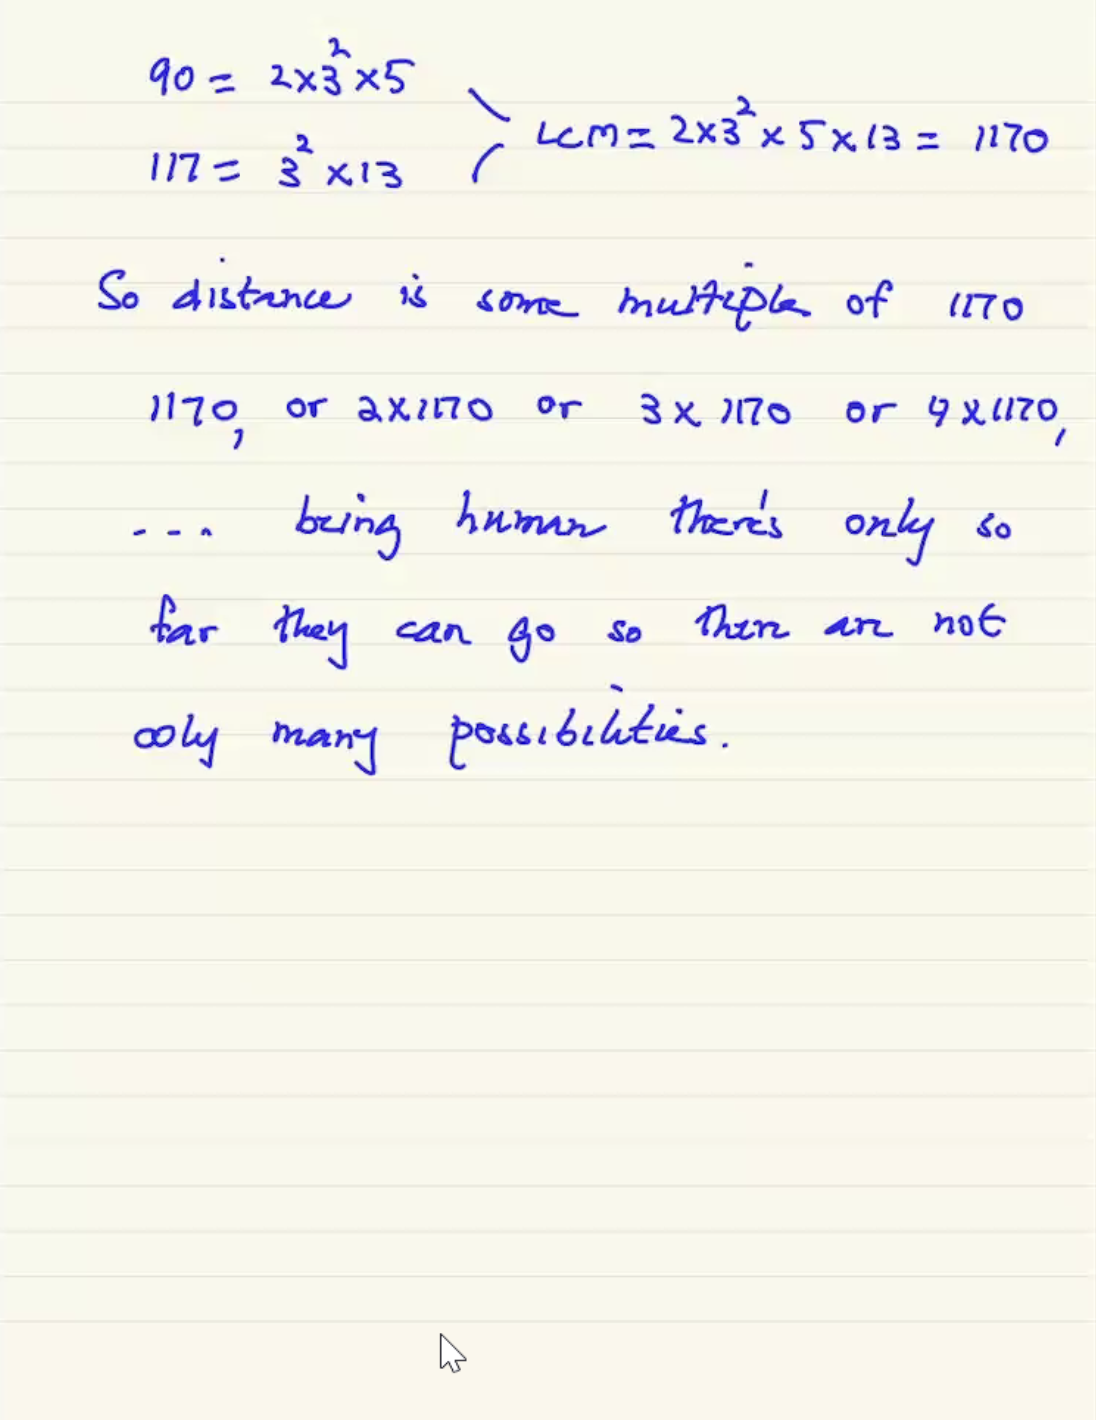 90 = 2×3²×5
117 = 3²×13
LCM = 2×3²×5×13 = 1170
So distance is some multiple of 1170
1170, or 2×1170 or 3×1170 or 4×1170,
--- being human there's only so
far they can go so there are not
∞ly many possibilities.